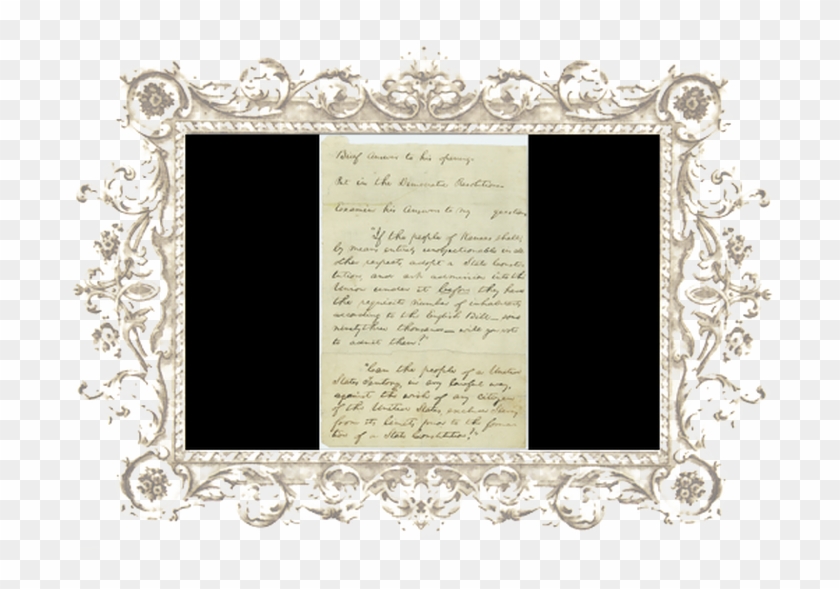 Brief answer to his opening.
Put in the Democratic Resolutions.
Examine his answers to my questions
"If the people of Kansas shall,
by means entirely unobjectionable in all
other respects, adopt a State Consti-
tution, and ask admission into the
Union under it before they have
the requisite number of inhabitants
according to the English Bill— some
ninetythree thousand— will you vote
to admit them?"
"Can the people of a United
States Territory, in any lawful way,
against the wish of any citizen
of the United States, exclude slavery
from its limits, prior to the forma-
tion of a State Constitution?"